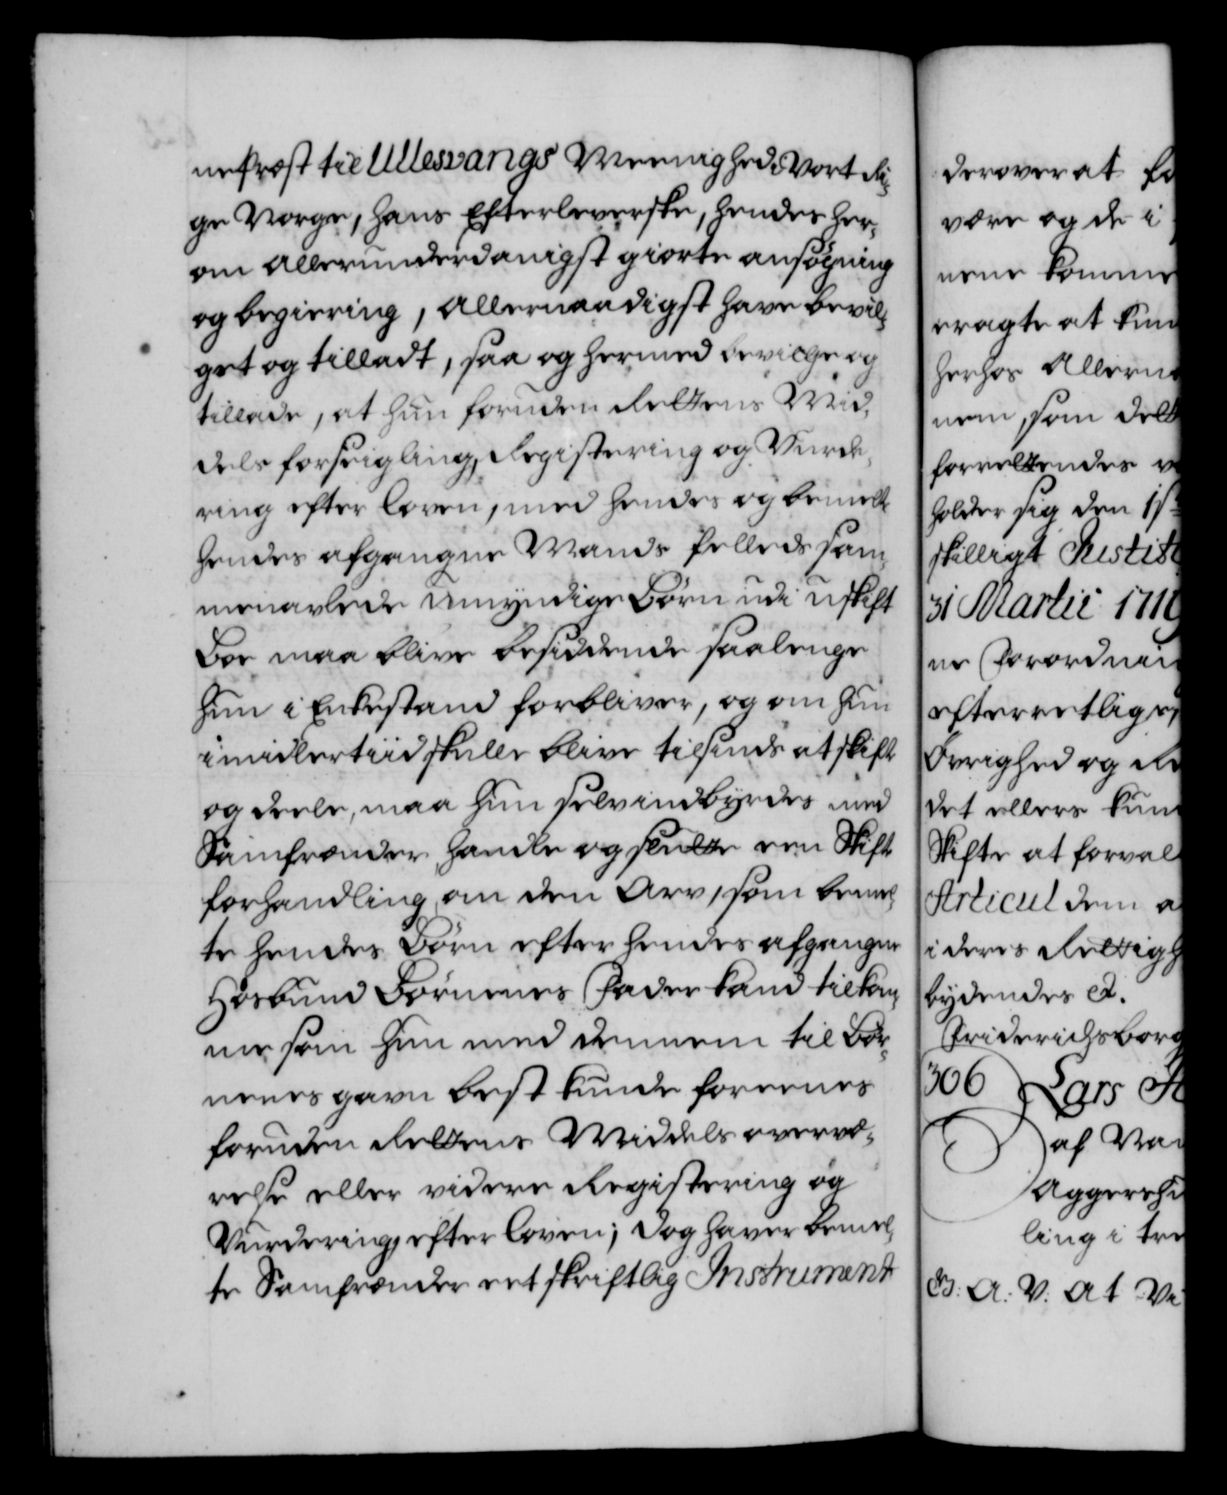 nefræst til Ullesvangs Meenighed i Vort Ri-
ge Norge, hans Efterleverske, hendes her-
om allerunderdanigst giorte ansøgning
og begiering, allernaadigst have bevil-
get og tilladt, saa og hermed bevilge og
tillade, at hun foruden Rettens Mid-
dels forseigling, Registering og Vurde-
ring efter loven, med hendes og bemelte
hendes afgangne Mands fælleds sam-
menavlede umyndige Børn udi uskift
Boe maa blive besiddende saalenge
hun i Enkestand forbliver, og om hun
imidlertiid skulle blive tilsinds at skifte
og deele, maa hun selv indbyrdes med
Samfrænder handle og slutte een Skifte
forhandling, om den Arv, som bemel-
te hendes Børn efter hendes afgangne
Hosbund Børnenes Fader kand tilkom-
me som hun med dennem til Bør-
nenes gavn best kunde foreenes
foruden Rettens Middels overvæ-
relse eller videre Registering og
Vurdering efter loven; dog haver bemel-
te Samfrænder et skriftlig Instrument
derover at
være og de i
nene komme
eragte at kun
herhos Allern
nem, som dett
forrettendes
holder sig den
skilligt Justit
31 Martii 1719
ne Forordnin
efterretlige,
Øvrighed og Re
det ellers kun
Skifte at forval
Articul dem
i deres Rettigh
bydendes &.
Friderichsborg
306 Lars
af
Aggershu
ling i tre
G: A: V: At Vi